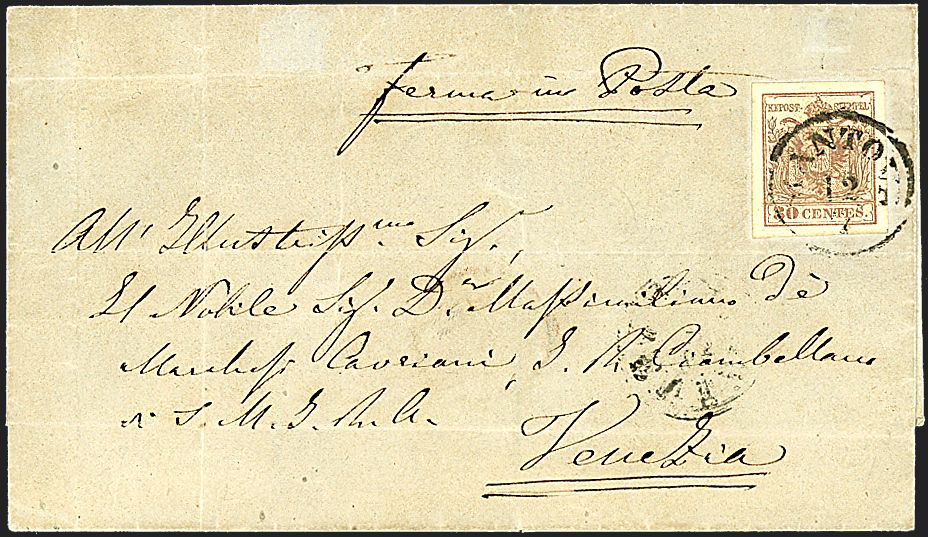 ferma in Posta
KKPOST-STEMPEL
30 CENTES.
12
All' Illustrissmo Sig.
Il Nobile Sig. Dn Massimiliano de
Marchesi Cavriani, I. R. Ciambellano
di S. M. I. R. A.
Venezia